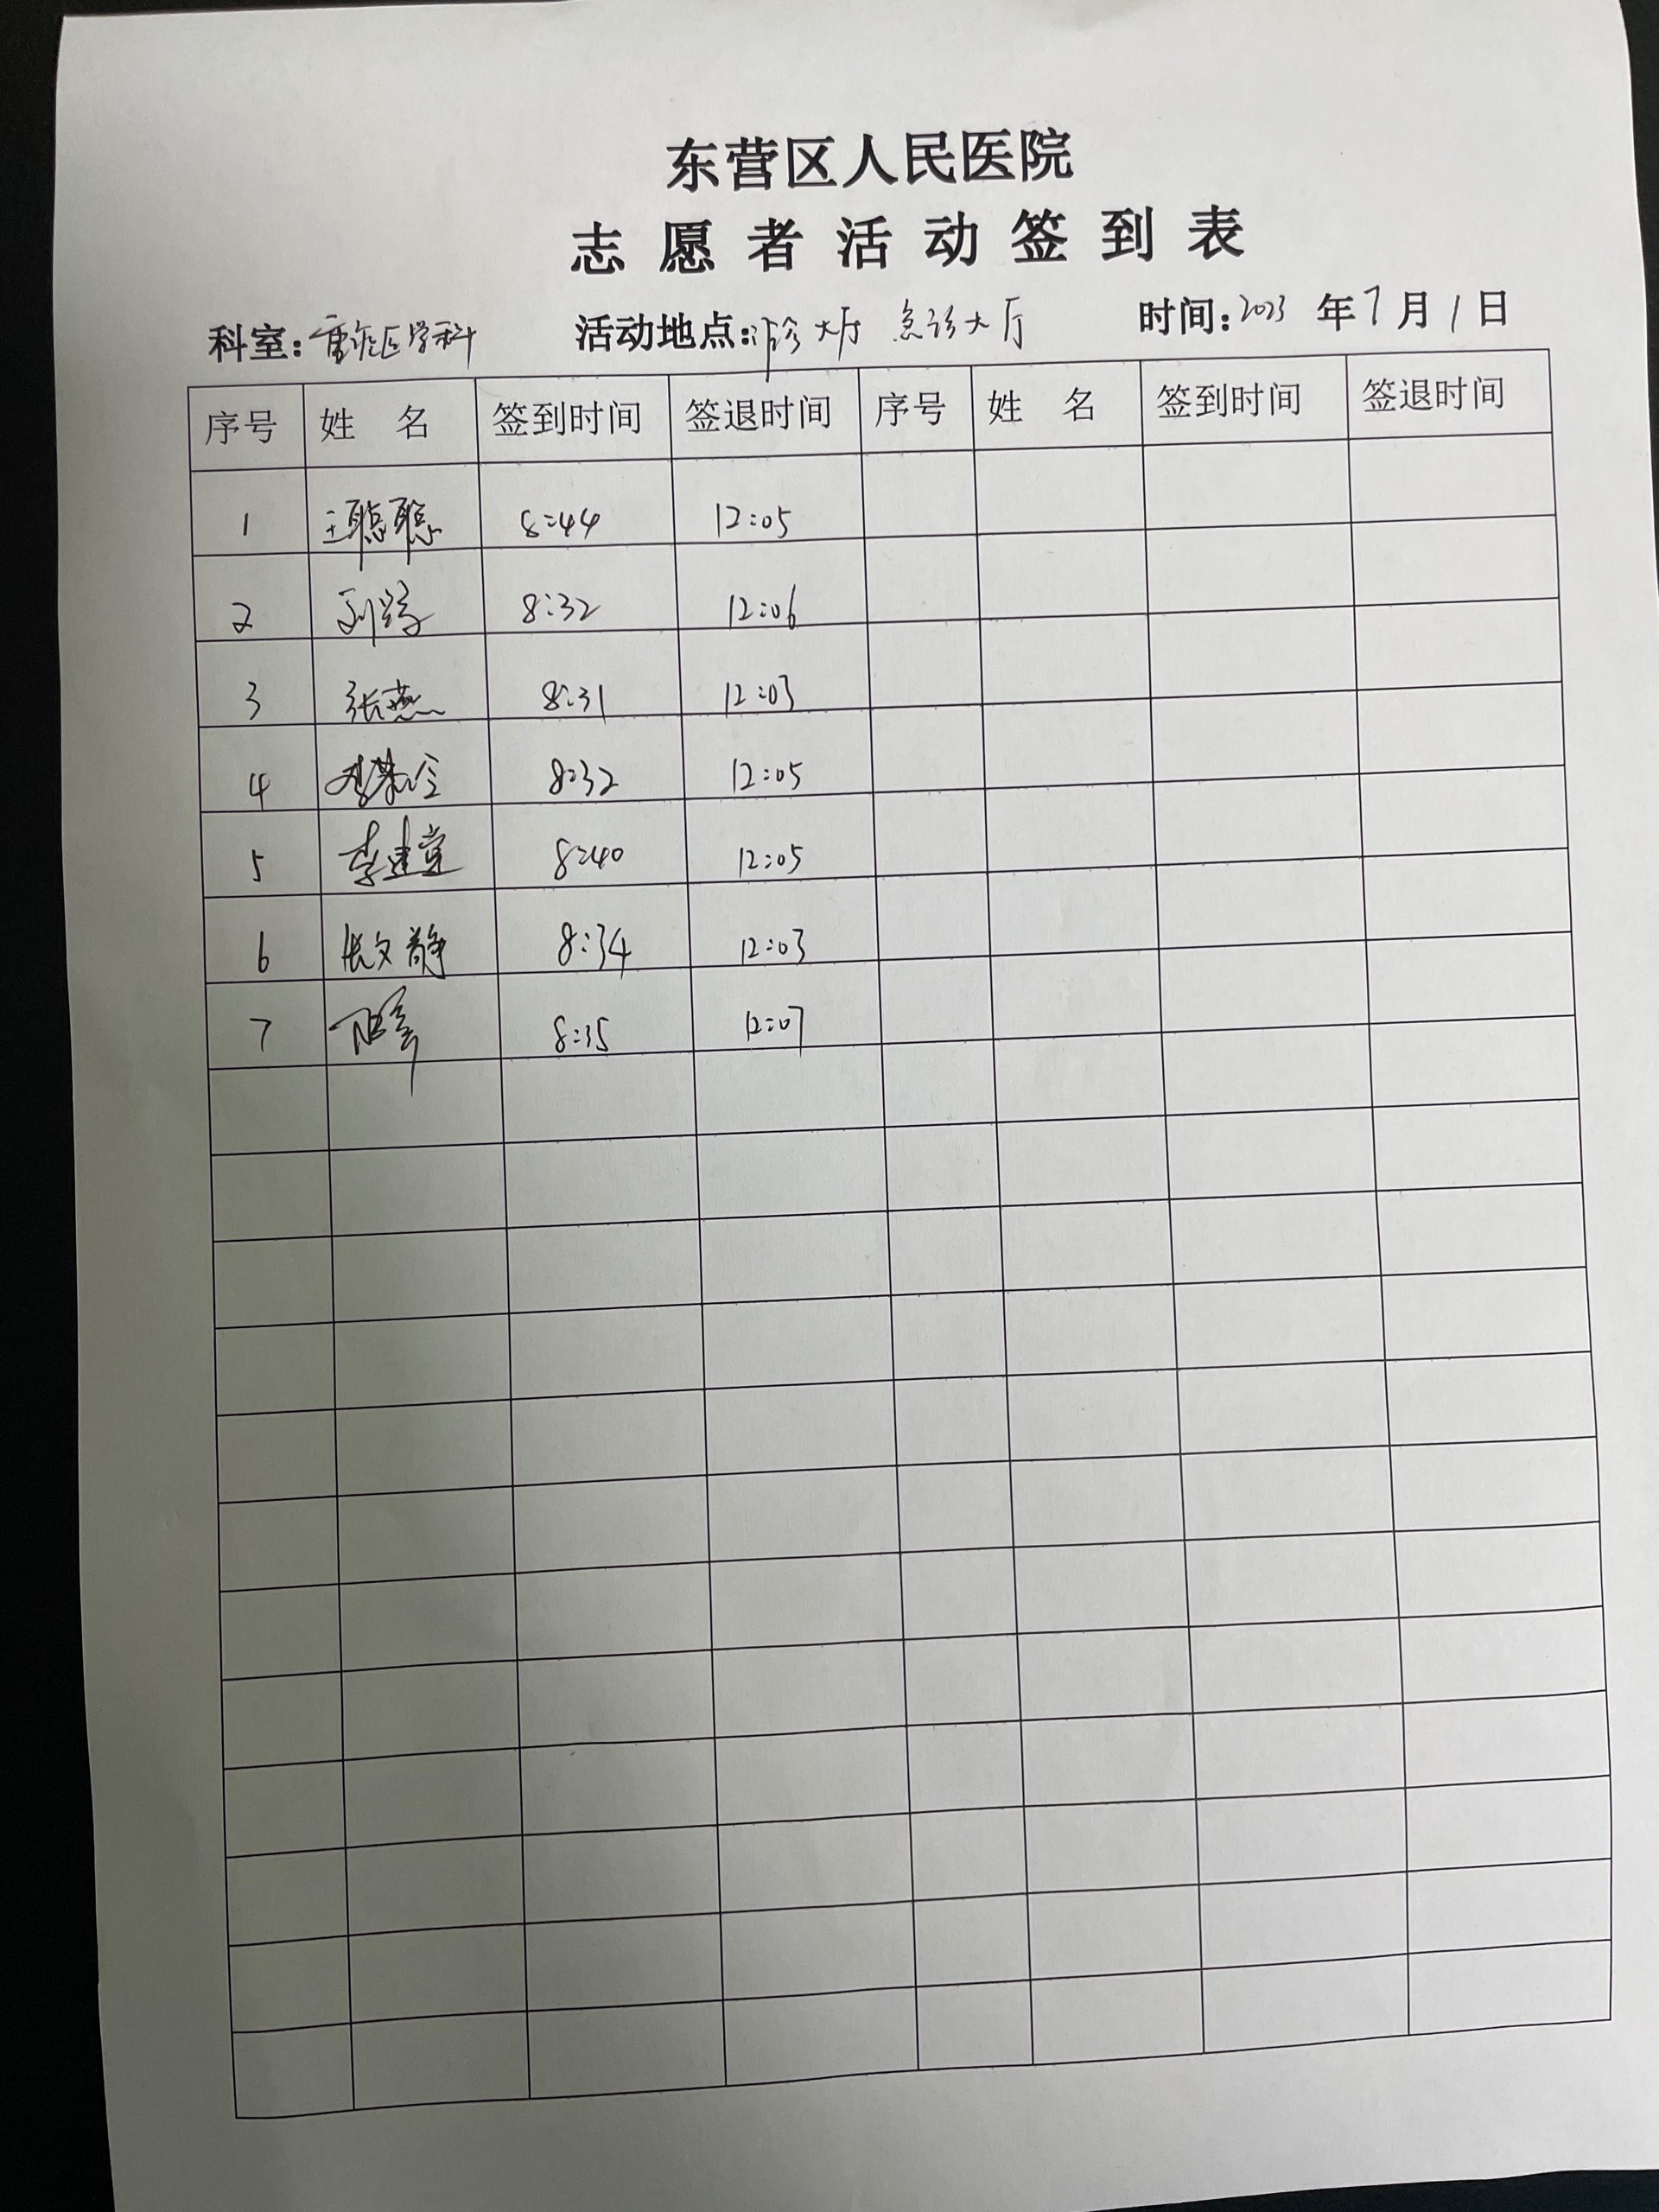 东营区人民医院
志愿者活动签到表
科室:重症医学科 活动地点:门诊大厅 急诊大厅 时间:2023年7月1日
序号 姓名 签到时间 签退时间 序号 姓名 签到时间 签退时间
1 王聪聪 8:44 12:05
2 8:32 12:06
3 张燕 8:31 12:03
4 8:32 12:05
5 李建堂 8:40 12:05
6 张文静 8:34 12:03
7 8:35 12:07